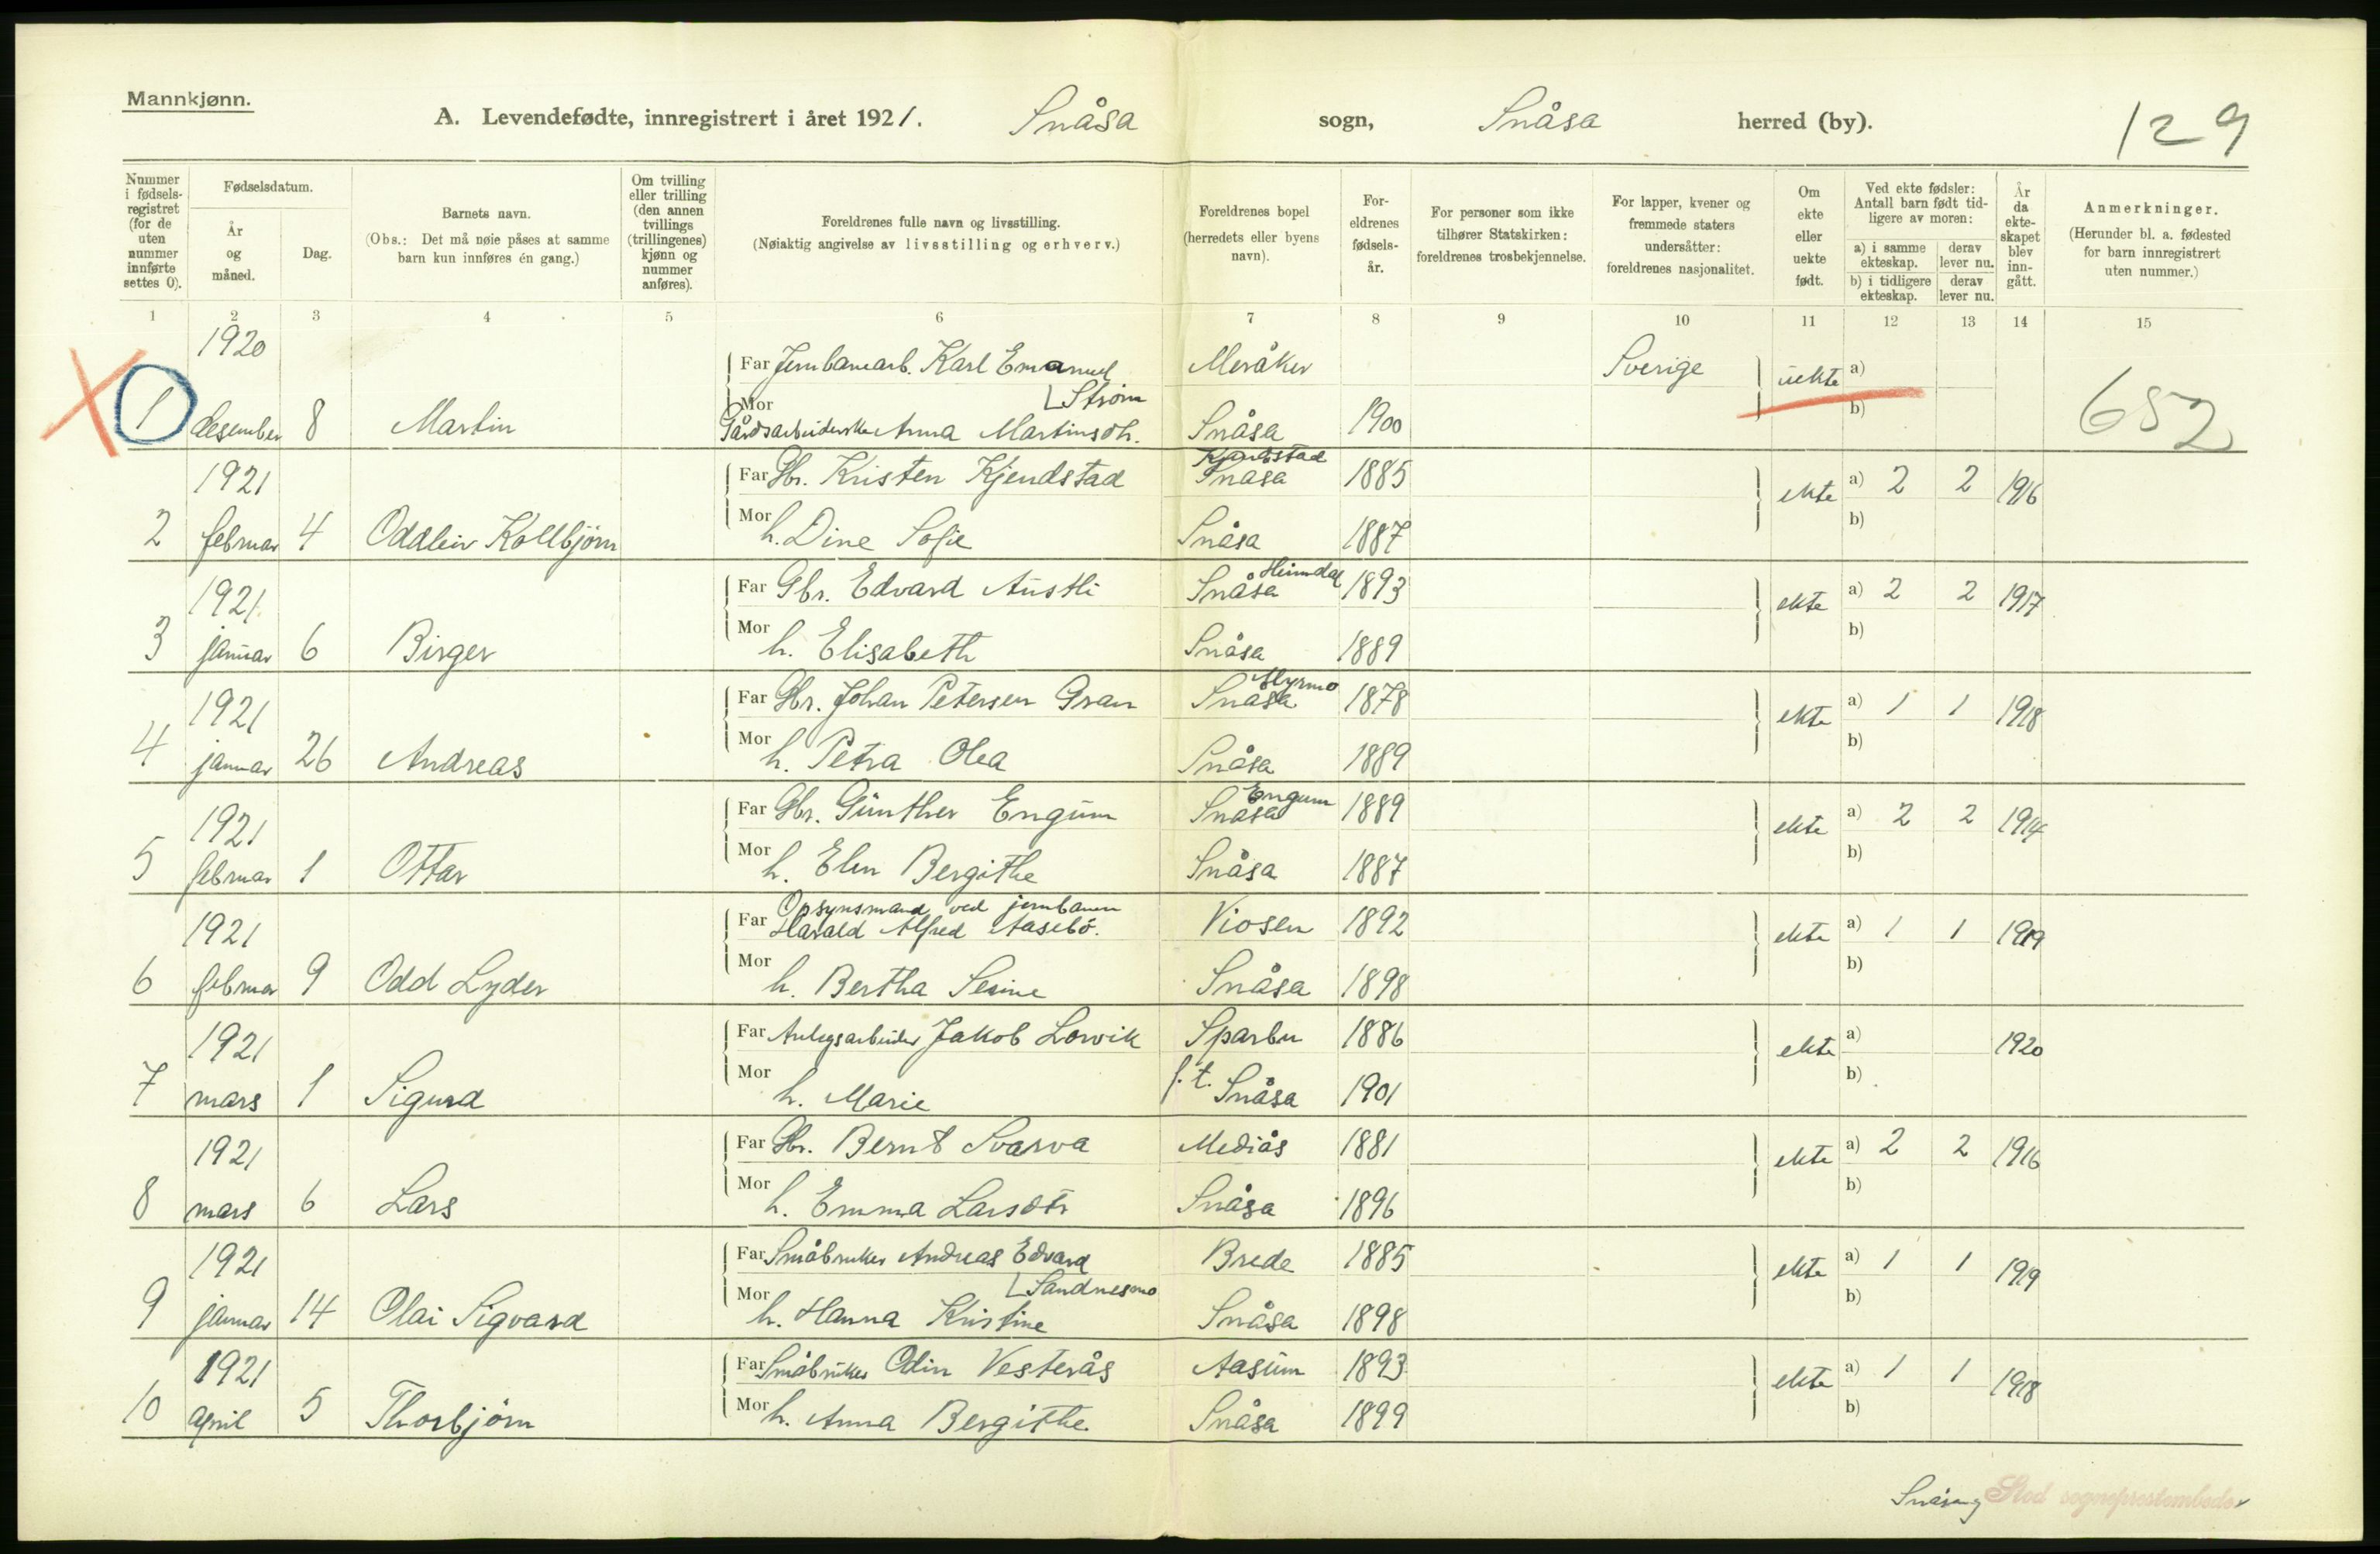 Mannkjønn.
A. Levendefødte, innregistrert i året 1921. Snåsa sogn, Snåsa herred (by). 129
Nummer i fødsels- registret (for de uten nummer innførte settes 0).
Fødselsdatum.
År og måned.
Dag.
Barnets navn.
(Obs.: Det må nøie påses at samme barn kun innføres én gang.)
Om tvilling eller trilling (den annen tvillings (trillingenes) kjønn og nummer anføres).
Foreldrenes fulle navn og livsstilling.
(Nøiaktig angivelse av livsstilling og erhverv.)
Foreldrenes bopel (herredets eller byens navn).
For- eldrenes fødsels- år.
For personer som ikke tilhører Statskirken: foreldrenes trosbekjennelse.
For lapper, kvener og fremmede staters undersåtter: foreldrenes nasjonalitet.
Om ekte eller uekte født.
Ved ekte fødsler: Antall barn født tid- ligere av moren:
a) i samme ekteskap. derav lever nu.
b) i tidligere ekteskap. derav lever nu.
År da ekte- skapet blev inn- gått.
Anmerkninger.
(Herunder bl. a. fødested for barn innregistrert uten nummer.)
1 2 3 4 5 6 7 8 9 10 11 12 13 14 15
1920 Far Jernbanearb. Karl Emanuel Meråker Sverige uekte a)
Mor Strøm b)
1 desember 8 Martin Gårdsarbeiderske Anna Martinsdtr. Snåsa 1900 652
Kjendstad
1921 Far Gbr. Kristen Kjendstad Snåsa 1885 ekte a) 2 2 1916
2 februar 4 Oddleiv Kollbjørn Mor h. Dine Sofie Snåsa 1887 b)
Heimdal
1921 Far Gbr. Edvard Austli Snåsa 1893 ekte a) 2 2 1917
3 januar 6 Birger Mor h. Elisabeth Snåsa 1889 b)
Myrmo
1921 Far Gbr. Johan Petersen Gran Snåsa 1878 ekte a) 1 1 1918
4 januar 26 Andreas Mor h. Petra Olea Snåsa 1889 b)
Engum
1921 Far Gbr. Günther Engum Snåsa 1889 ekte a) 2 2 1914
5 februar 1 Ottar Mor h. Elen Bergithe Snåsa 1887 b)
Opsynsmand ved jernbanen
1921 Far Harald Alfred Aasebö. Viosen 1892 ekte a) 1 1 1919
6 februar 9 Odd Lyder Mor h. Bertha Serine Snåsa 1898 b)
1921 Far Anlegsarbeider Jakob Lorvik Sparbu 1886 ekte a) 1920
7 mars 1 Sigurd Mor h. Marie f. t. Snåsa 1901 b)
1921 Far Gbr. Bernt Svarva Mediås 1881 ekte a) 2 2 1916
8 mars 6 Lars Mor h. Emma Larsdtr Snåsa 1896 b)
1921 Far Småbruker Andreas Edvard Brede 1885 ekte a) 1 1 1919
Sandnesmo
9 januar 14 Olai Sigvard Mor h. Hanna Kristine Snåsa 1898 b)
1921 Far Småbruker Odin Vesterås Aasum 1893 ekte a) 1 1 1918
10 april 5 Thorbjörn Mor h. Anna Bergithe Snåsa 1899 b)
Stod sogneprestembede